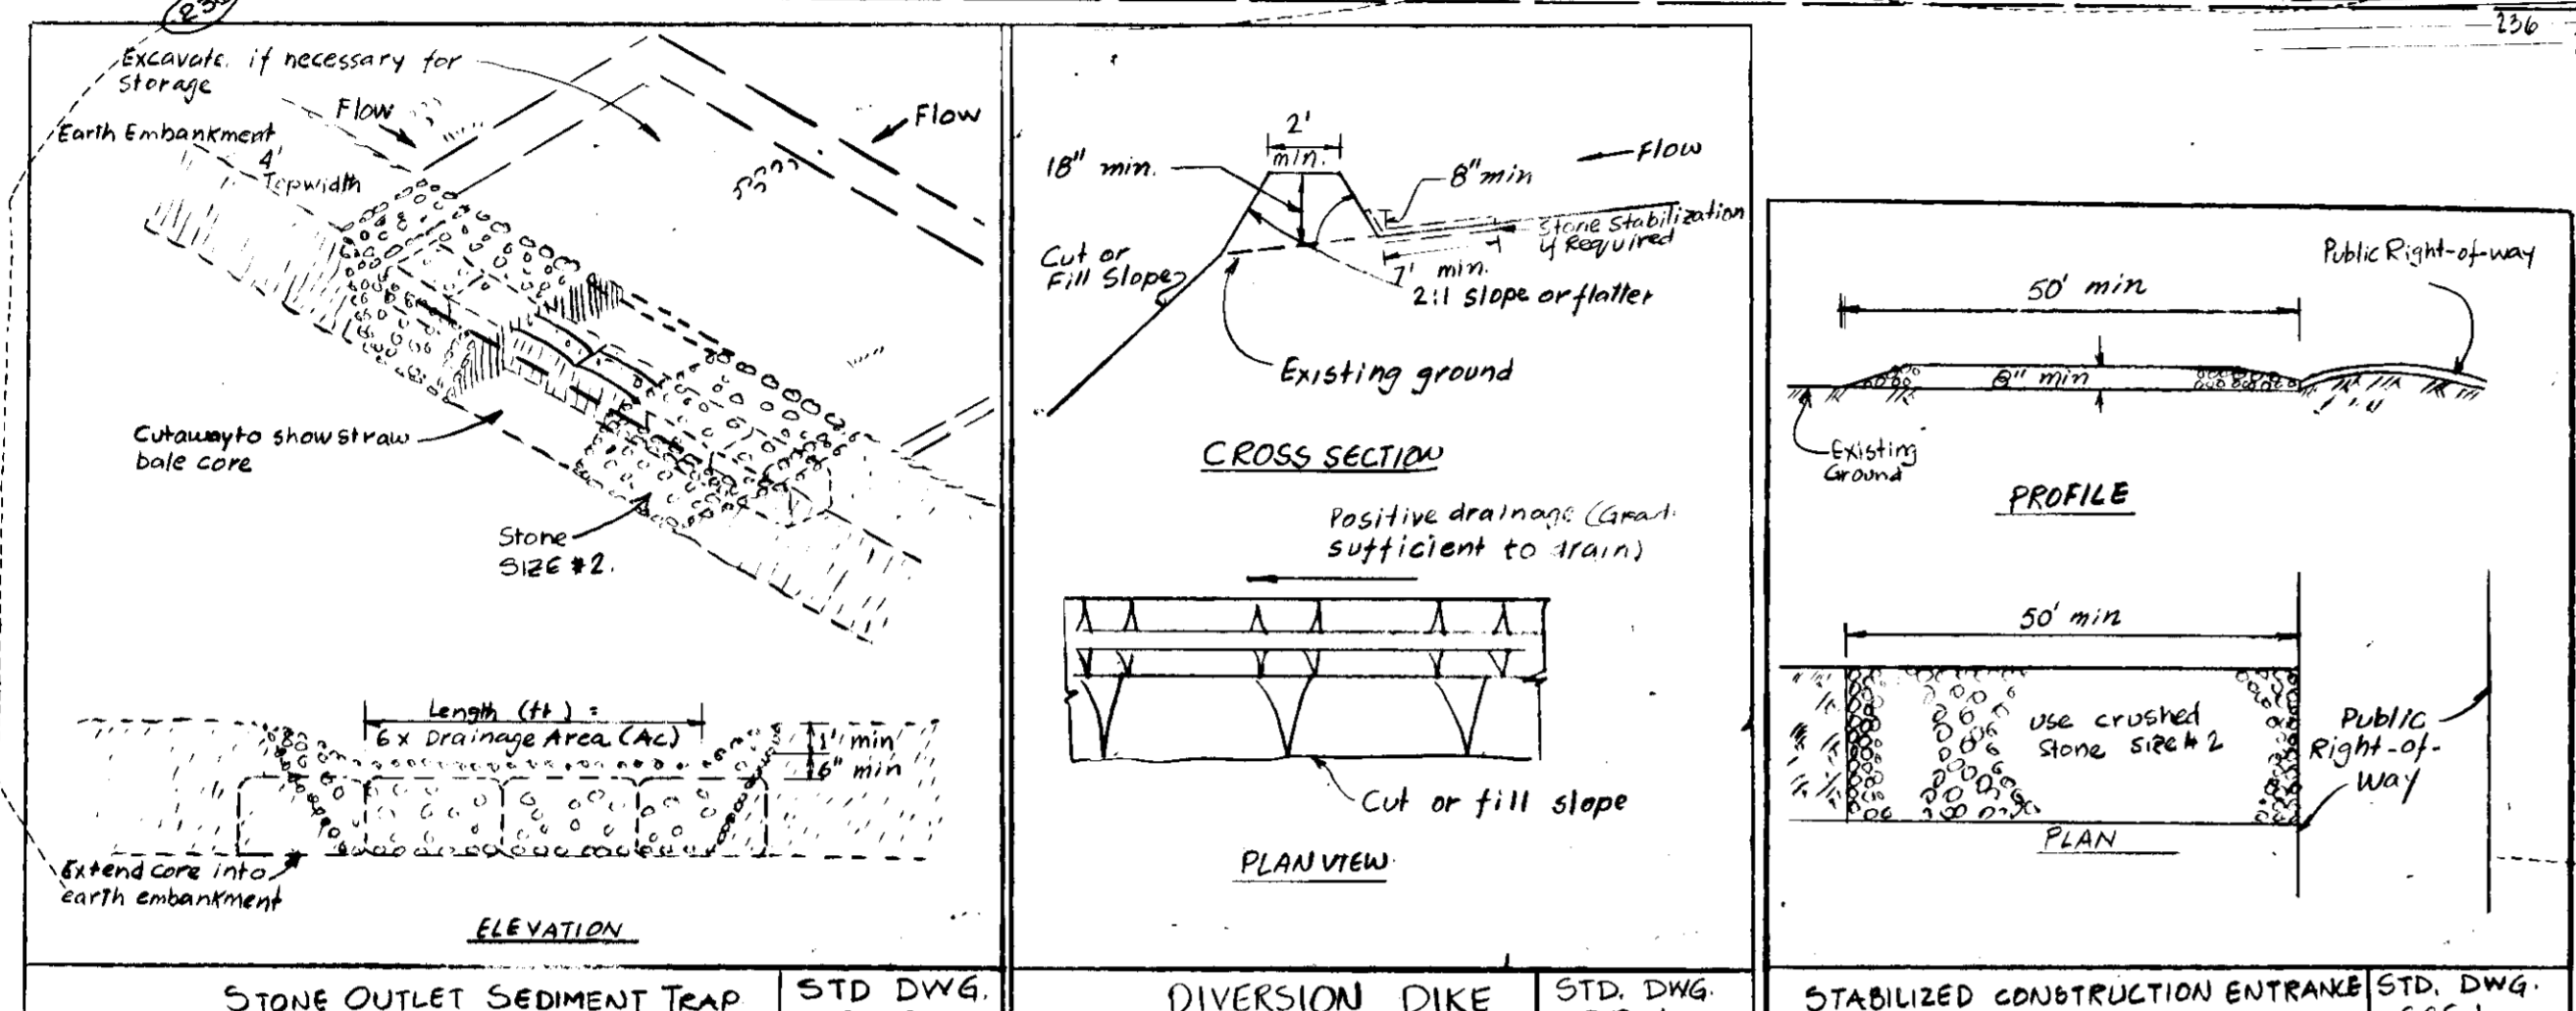 236
Excavate if necessary for
Storage
Flow
Flow
Earth Embankment
4'
Topwidth
Cutaway to show straw
bale core
Stone
SIZE #2.
Length (ft) =
6 x Drainage Area (Ac)
1' min
6" min
Extend core into
earth embankment
ELEVATION
STONE OUTLET SEDIMENT TRAP
STD DWG.
2'
min.
18" min.
8" min
Flow
Stone Stabilization
if Required
Cut or
Fill Slope
7' min.
2:1 slope or flatter
Existing ground
CROSS SECTION
Positive drainage
sufficient to drain)
Cut or fill slope
PLAN VIEW
DIVERSION DIKE
STD. DWG.
Public Right-of-way
50' min
8" min
Existing
Ground
PROFILE
50' min
use crushed
Stone size #2
Public
Right-of-
Way
PLAN
STABILIZED CONSTRUCTION ENTRANCE
STD. DWG.